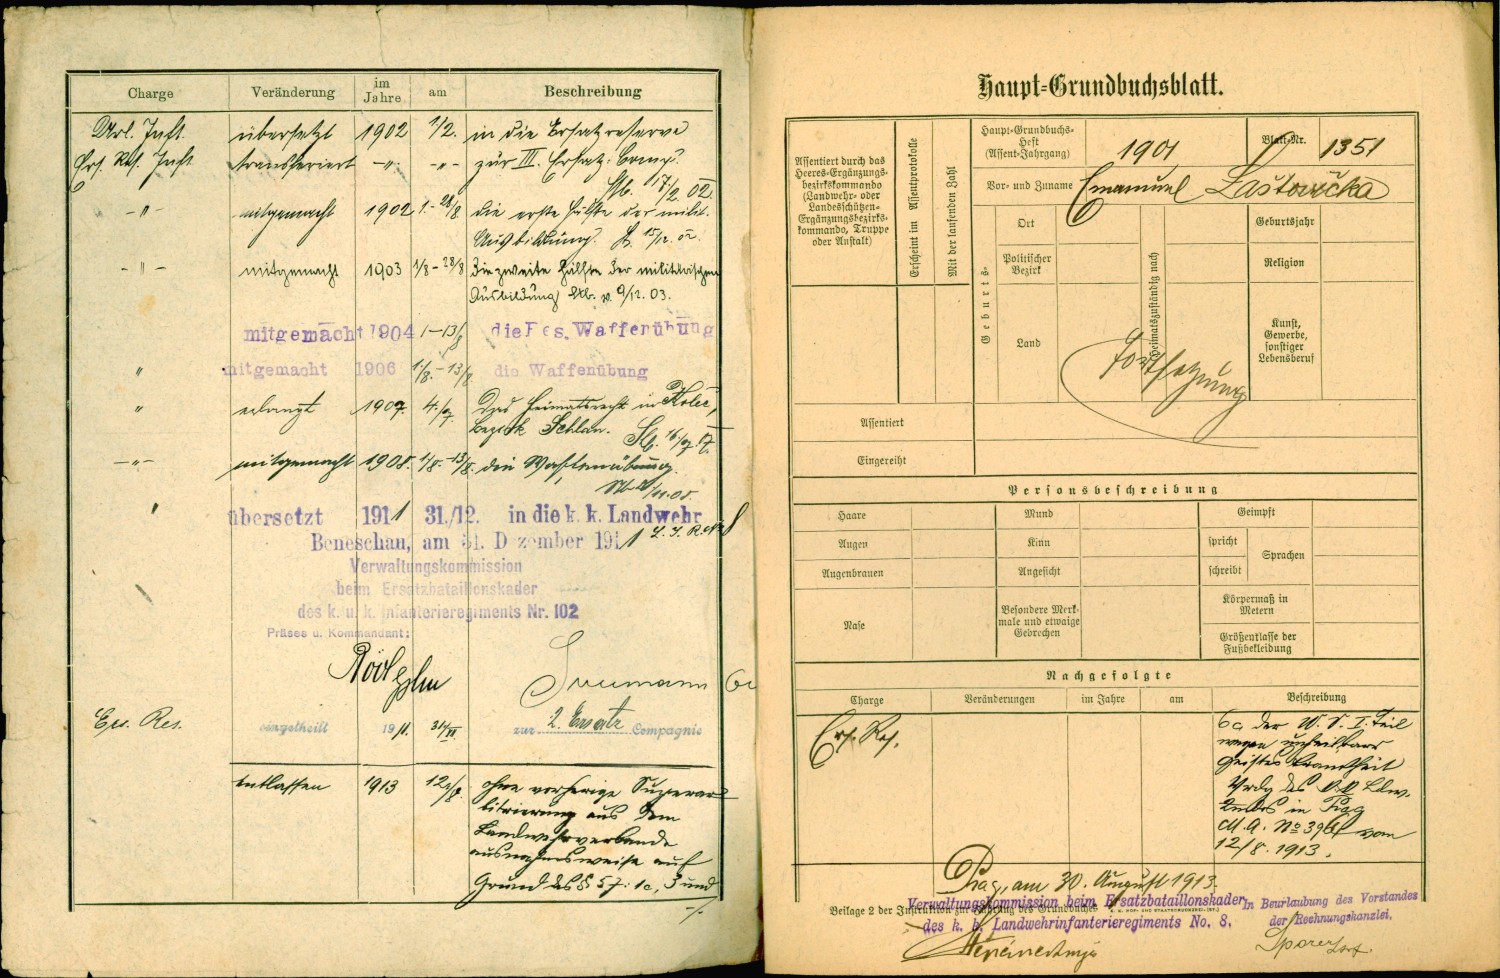 Charge Veränderung im Jahre am Beschreibung
Url. Inft. übersetzt 1902 1/2. in die Ersatzreserve
Ers. Res. Inft. transferiert -"- -"- zur III. Ersatz-Comp.
17/2 02.
-"- mitgemacht 1902 1.-28/8. die erste Hälfte der milit.
Ausbildung. 15/12. 02.
-"- mitgemacht 1903 1/8-28/8 die zweite Hälfte der militärischen
Ausbildung 9/12. 03.
mitgemacht 1904 1-13/8 die Res. Waffenübung
" mitgemacht 1906 1/8.-13/8 die Waffenübung
" erlangt 1907. 4./7. das Heimatsrecht in
Bezirk Schlan.
-"- mitgemacht 1908. 1/8.-13/8. die Waffenübung.
" übersetzt 1911 31./12. in die k. k. Landwehr
L. I. R. No 8
Beneschau, am 31. Dezember 1911
Verwaltungskommission
beim Ersatzbataillonskader
des k. u. k. Infanterieregiments Nr. 102
Präses u. Kommandant:
Ers. Res. eingetheilt 1911. 31/XII zur 2. Ersatz Compagnie
entlassen 1913 12/8. ohne vorherige Superar-
bitrierung aus dem
Landwehrverbande
ausnahmsweise auf
Grund des § 57: 1c, 3 und
-/.
Haupt-Grundbuchsblatt.
Assentiert durch das
Heeres-Ergänzungs-
bezirkskommando
(Landwehr- oder
Landesschützen-
Ergänzungsbezirks-
kommando, Truppe
oder Anstalt)
Erscheint im Assentprotokolle
Mit der laufenden Zahl
Haupt-Grundbuchs-
Heft
(Assent-Jahrgang)
1901
Blatt-Nr. 1351
Vor- und Zuname Emanuel Lastovička
Geburts-
Ort
Politischer
Bezirk
Land
Heimatszuständig nach
Geburtsjahr
Religion
Kunst,
Gewerbe,
sonstiger
Lebensberuf
Fortsetzung
Assentiert
Eingereiht
Personsbeschreibung
Haare Mund Geimpft
Augen Kinn spricht Sprachen
Augenbrauen Angesicht schreibt
Nase
Besondere Merk-
male und etwaige
Gebrechen
Körpermaß in
Metern
Größenklasse der
Fußbekleidung
Nachgefolgte
Charge Veränderungen im Jahre am Beschreibung
Ers. Res. 6c der W. V. I. Teil
wegen unheilbarer
Geisteskrankheit
Vrdg des k.k. Ldw.
Kmdos in Prag
M.A. No 39 vom
12/8. 1913.
Prag, am 30. August 1913.
Beilage 2 der Instruktion zur Führung des Grundbuches
Verwaltungskommission beim Ersatzbataillonskader
des k. k. Landwehrinfanterieregiments No. 8.
In Beurlaubung des Vorstandes
der Rechnungskanzlei.